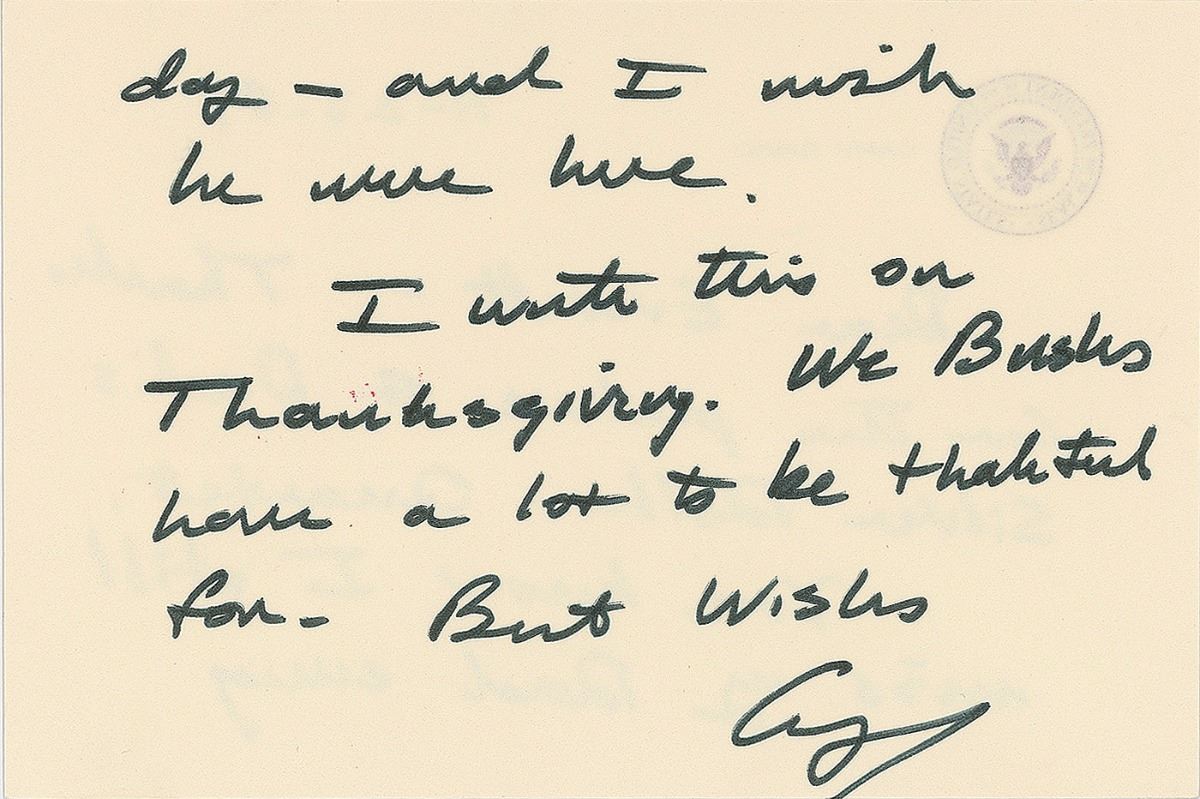 day – and I wish
he were here.
I write this on
Thanksgiving. We Bushs
have a lot to be thakful
for – Best Wishes